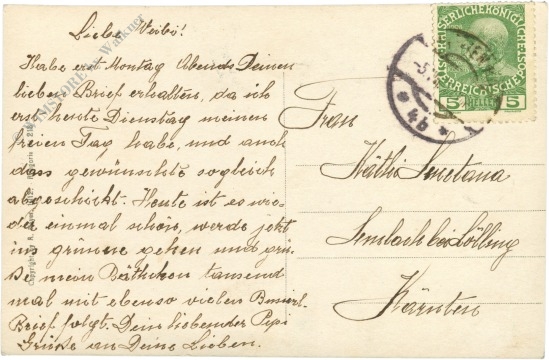 Liebes Weibi!
Habe erst Montag Abends Deinen
lieben Brief erhalten, da ich
erst heute Dienstag meinen
freien Tag habe, und auch
das gewünschte sogleich
abgeschickt. Heute ist es wie-
der einmal schön, werde jetzt
ins grüne gehen und grü-
ße mein Käthchen tausend
mal mit ebenso vielen Bussi.
Brief folgt. Dein liebender Pepi
Grüße an Deine Lieben.
Frau
Käthi Smetana
bei Lölling
Kärnten
KAISERLICHE KÖNIGLICHE
ÖSTERREICHISCHE
5 HELLER 5
4b